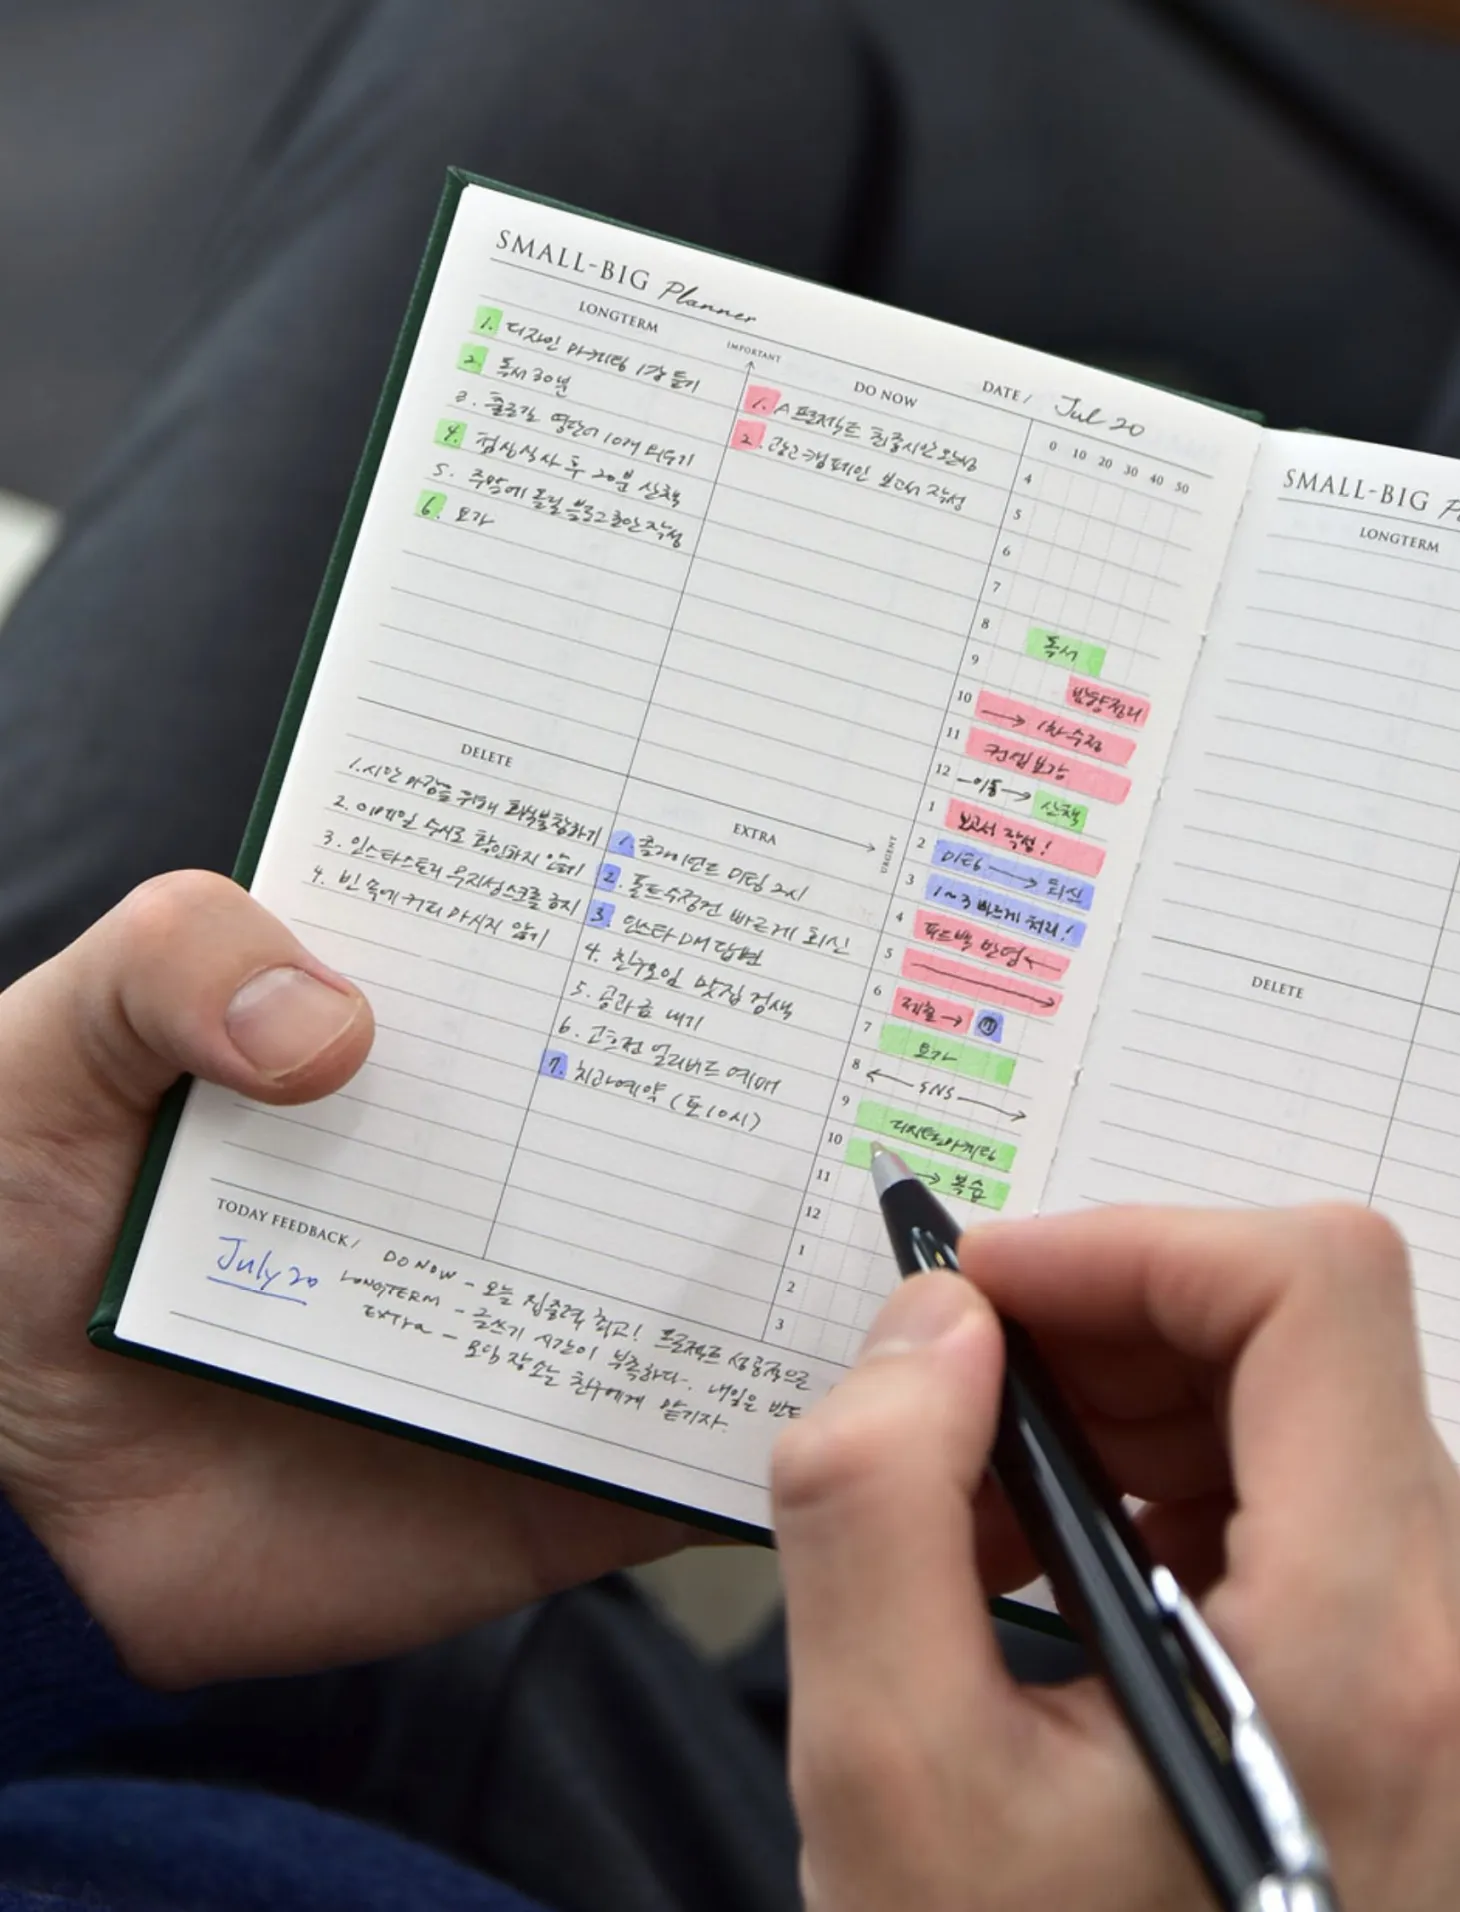 SMALL-BIG Planner
DATE / Jul 20
LONGTERM
1. 디자인 마케팅 1강 듣기
2. 독서 30분
3. 출근길 영단어 10개 외우기
4. 점심식사 후 20분 산책
5. 주말에 올릴 블로그 초안 작성
6. 요가
IMPORTANT
DO NOW
1. A 프로젝트 최종시안 완성
2. 광고 캠페인 보고서 작성
DELETE
1. 시안 마감을 위해 회식불참하기
2. 이메일 수시로 확인하지 않기
3. 인스타스토리 무지성스크롤 금지
4. 빈 속에 커피 마시지 않기
EXTRA
URGENT
1. 클라이언트 미팅 2시
2. 폰트수정건 빠르게 회신
3. 인스타 DM 답변
4. 친구모임 맛집 검색
5. 공과금 내기
6. 고흐전 얼리버드 예매
7. 치과예약 (토 10시)
0 10 20 30 40 50
4
5
6
7
8
9 독서
10 방향정리
11 → 1차 수정
12 컨셉 보강
1 —이동→ 산책
2 보고서 작성!
3 미팅 → 회신
4 1~3 빠르게 처리!
5 피드백 반영 ←
6 →
7 제출 → ⑦
8 요가
9 ← SNS →
10 디지털마케팅
11 → 복습
12
1
2
3
TODAY FEEDBACK /
July 20
DO NOW - 오늘 집중력 최고! 프로젝트 성공적으로
LONGTERM - 글쓰기 시간이 부족하다. 내일은 반드
EXTRA - 모임 장소는 친구에게 맡기자.
SMALL-BIG
LONGTERM
DELETE